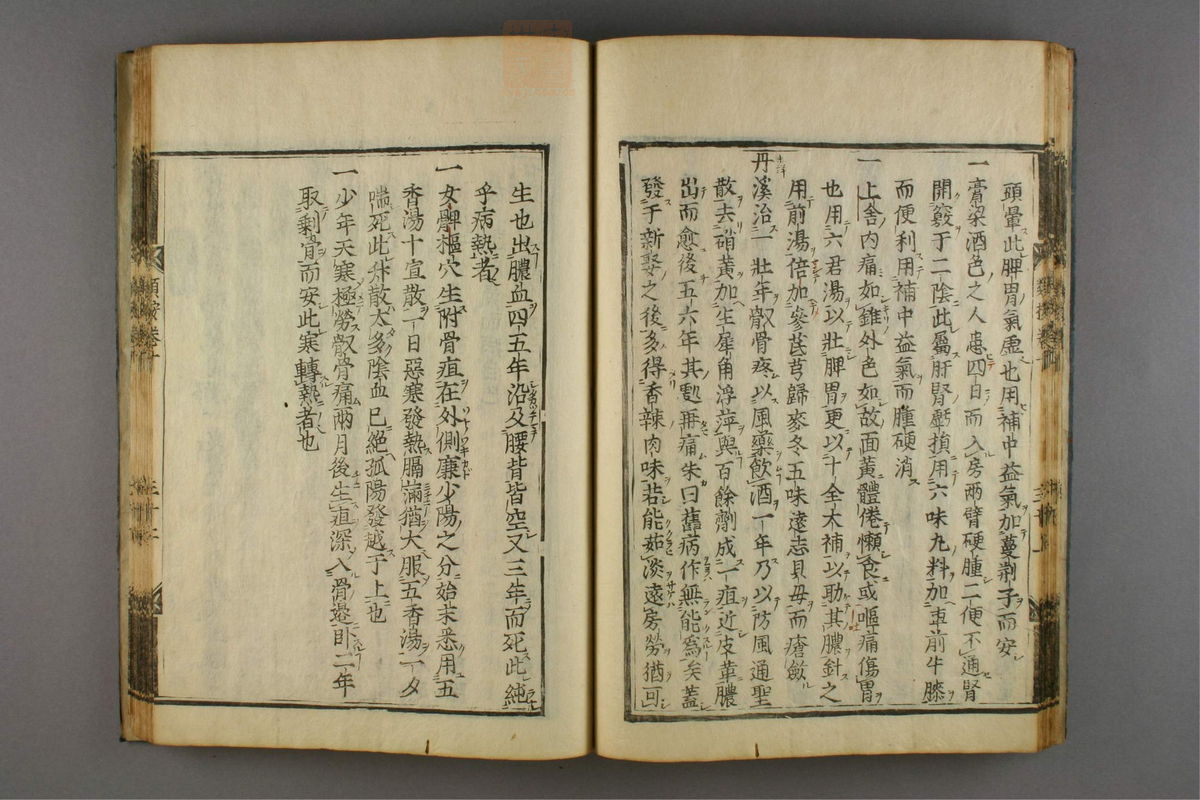 頭暈此脾胃氣虛也用補中益氣加蔓荊子而安
一膏粱酒色之人患四日而入房兩臂硬腫二便不通腎
開竅于二陰此屬肝腎虧損用六味丸料加車前牛膝
而便利用補中益氣而腫硬消
一上舍內痛如錐外色如故面黃體倦懶食或嘔痛傷胃
也用六君湯以壯脾胃更以十全大補以助其膿針之
用前湯倍加參芪芎歸麥冬五味遠志貝毋而瘡斂
丹溪治一壯年髀骨疼以風藥飲酒一年乃以防風通聖
散去硝黃加生犀角浮萍與百餘劑成一疽近皮革膿
出而愈後五六年其處再痛朱曰舊病作無能為矣蓋
發于新娶之後多得香辣肉味若能茹淡遠房勞猶可
生也出膿血四五年沿及腰背皆空又三年而死此純
乎病熱者
一女髀樞穴生附骨疽在外側廉少陽之分始末悉用五
香湯十宣散一日惡寒發熱膈滿猶大服五香湯一夕
喘死此升散太多陰血已絕孤陽發越于上也
一少年天寒極勞髀骨痛兩月後生疽深入骨邊臥二年
取剩骨而安此寒轉熱者也